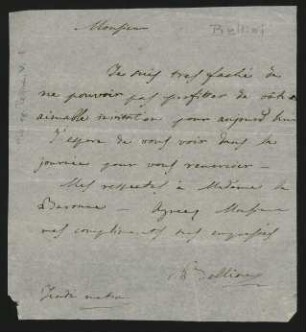 Bellini
Monsieur
Je suis tres faché de
ne pouvoir pas profitter de votre
aimable invitation pour aujourd'hui
J'espere de vous voir dans la
journée pour vous remercier —
Mes respectes à Madame la
Baronne — Agreez Monsieur
mes compliments mes empressés
Bellini
Jeudi matin